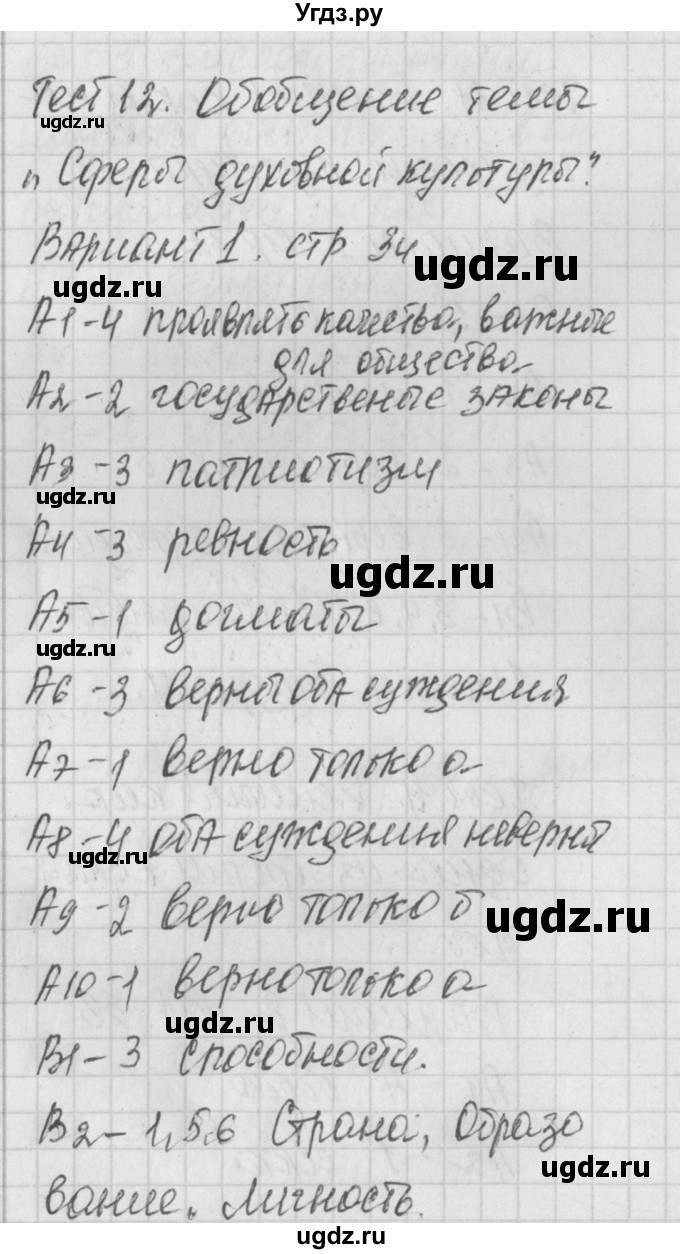 Угдз.ру
Тест 12. Обобщение темы
ugdz.ru
„Сферы духовной культуры".
Вариант 1. стр 34
ugdz.ru
ugdz.ru
А1-4 проявлять качества, важные
для общества
А2-2 государственые законы
ugdz.ru
А3-3 патриотизм
ugdz.ru
А4-3 ревность
ugdz.ru
А5-1 догматы
ugdz.ru
А6-3 верны оба суждения
А7-1 верно только а
А8-4 оба суждения неверня
ugdz.ru
А9-2 верно только б
ugdz.ru
А10-1 верно только а
ugdz.ru
В1-3 способности.
В2-1,5,6 Страна, Образо
ugdz.ru
вание. Личность.
ugdz.ru